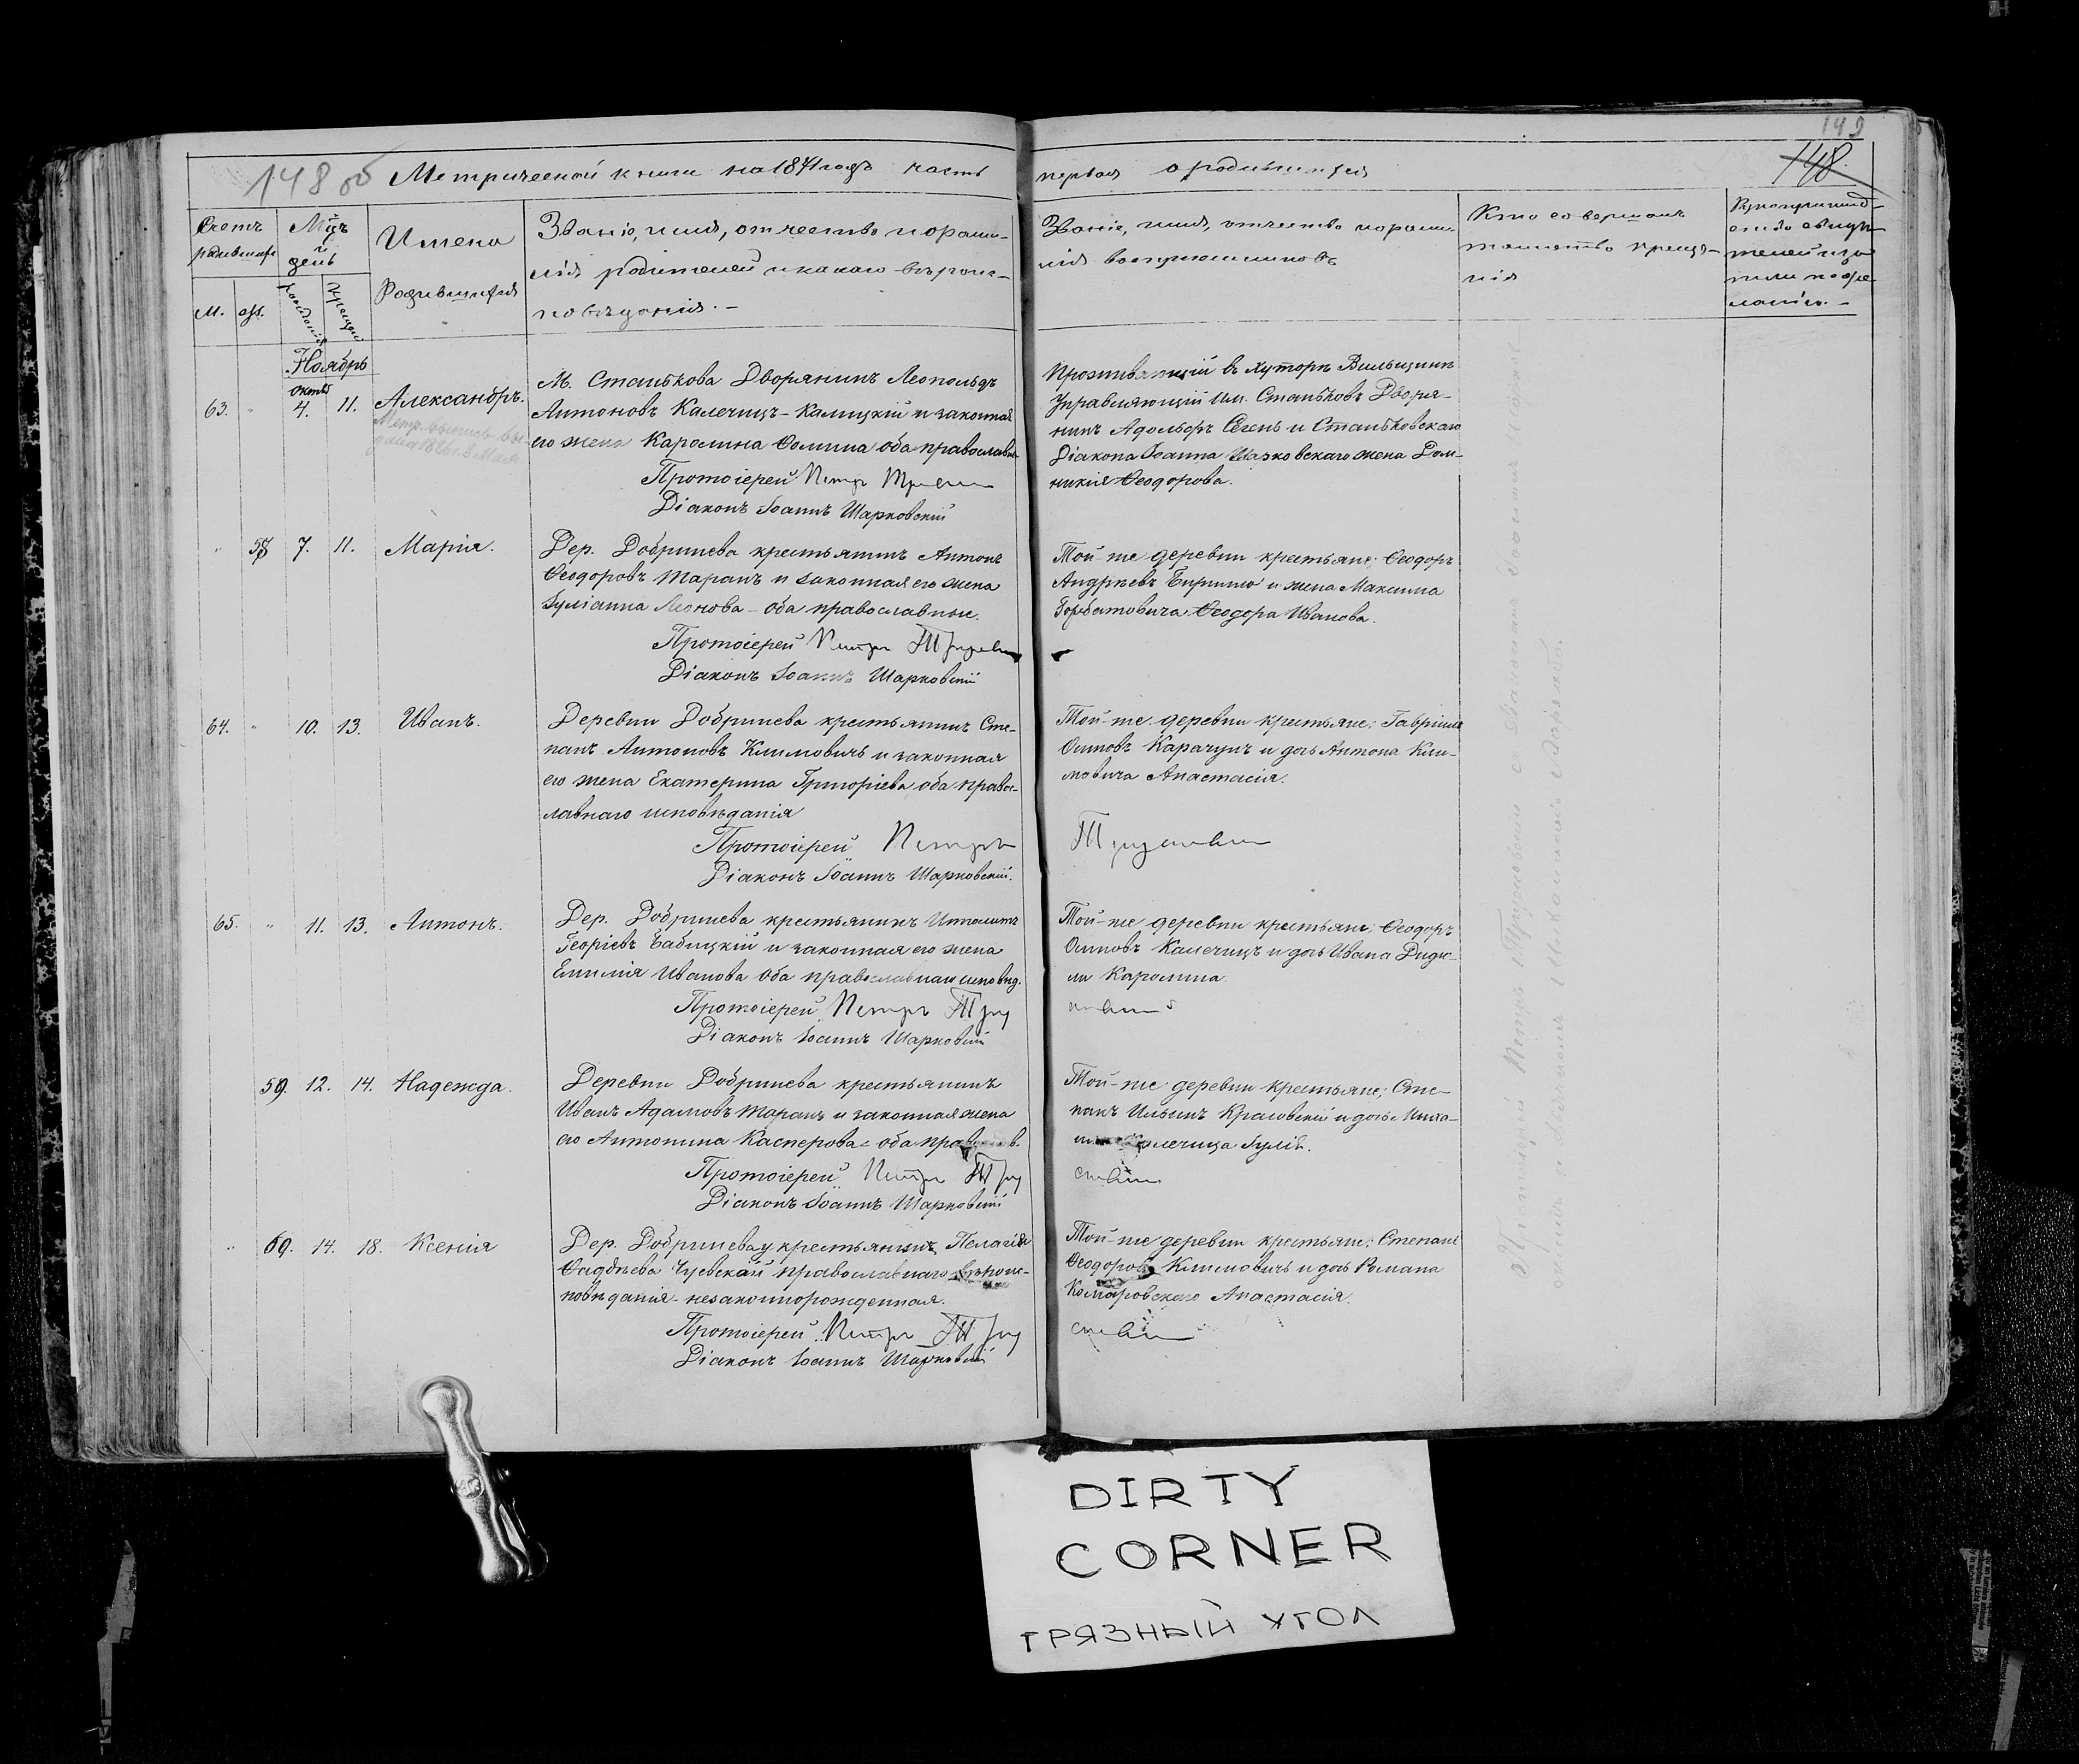 149
148.
148 об Метрической книги на 1871 годъ часть первая о родившихся
Счетъ родившихся
М. ж.
Мцъ и день
рожденія крещенія
Имена
Родившихся
Званіе, имя, отчество и фами-
лія родителей и какого вѣроис-
повѣданія. -
Званіе, имя, отчество и фами-
лія воспріемниковъ
Кто совершалъ
таинство креще-
нія
Рукоприклад-
ство свидѣ-
телей
по же-
ланію. -
Ноябрь
Октяб
63. " 4. 11. Александръ.
М. Станькова Дворянинъ Леопольдъ
Антоновъ Калечицъ-Калицкій и законная
его жена Каролина Ѳомина оба православн.
Протоіерей Петръ
Діаконъ Іоаннъ Шарковскій
Проживающій въ хуторѣ
Управляющій им. Станьковъ Дворя-
нинъ Адольфъ и Станьковскаго
Діакона Іоанна Шарковскаго жена Дом-
никія Ѳеодорова.
" 58 7. 11. Марія.
Дер. Добринева крестьянинъ Антонъ
Ѳеодоровъ Таранъ и законная его жена
Іуліанна Леонова - оба православные.
Протоіерей Петръ
Діаконъ Іоаннъ Шарковскій
Той-же деревни крестьяне: Ѳеодоръ
Андреевъ и жена Максима
Горбатовича Ѳеодора Иванова.
64. " 10. 13. Иванъ.
Деревни Добринева крестьянинъ Сте-
панъ Антоновъ Климовичъ и законная
его жена Екатерина Григоріева оба правос-
лавнаго исповѣданія
Протоіерей Петръ
Діаконъ Іоаннъ Шарковскій.
Той-же деревни крестьяне: Гавріилъ
Осиповъ Карачунъ и дочь Антона Кли-
мовича Анастасія.
65. " 11. 13. Антонъ.
Дер. Добринева крестьянинъ Ипполитъ
Георгіевъ Бабицкій и законная его жена
Емилія Иванова оба православнаго исповѣд.
Протоіерей Петръ
Діаконъ Іоаннъ Шарковскій
Той-же деревни крестьяне: Ѳеодоръ
Осиповъ Калечицъ и дочь Ивана Дидю-
ли Каролина.
59. 12. 14. Надежда.
Деревни Добринева крестьянинъ
Иванъ Адамовъ Таранъ и законная жена
его Антонина Касперова - оба
Протоіерей Петръ
Діаконъ Іоаннъ Шарковскій
Той-же деревни крестьяне: Сте-
панъ Ильинъ Красовскій и дочь
Калечица Іулія.
" 60. 14. 18. Ксенія
Дер. Добринева у крестьянки Пелагіи
Ѳаддѣева православнаго вѣроис-
повѣданія - незаконнорожденная.
Протоіерей Петръ
Діаконъ Іоаннъ Шарковскій
Той-же деревни крестьяне: Степанъ
Ѳеодоровъ Климовичъ и дочь Романа
Комаровскаго Анастасія.
DIRTY
CORNER
ГРЯЗНЫЙ УГОЛ